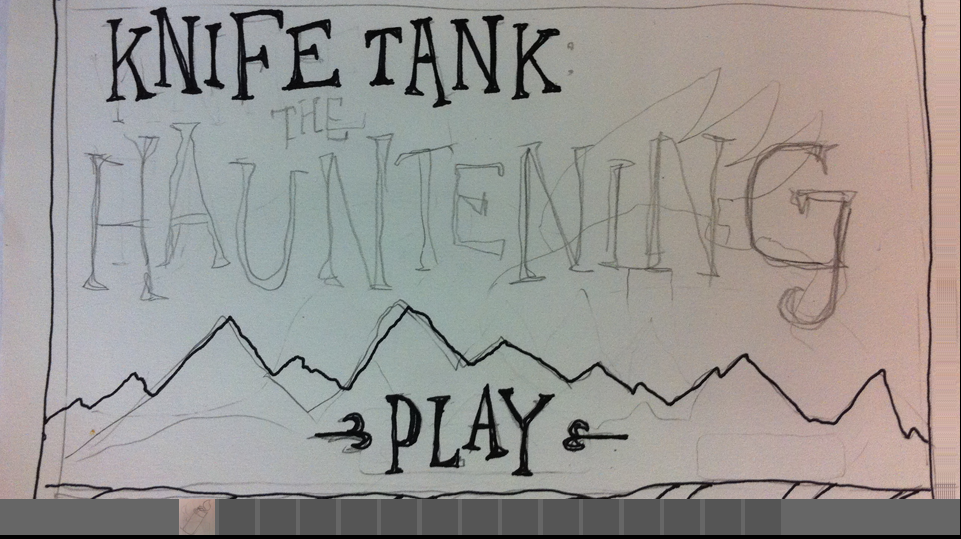 KNIFE TANK
THE
HAUNTENING
PLAY